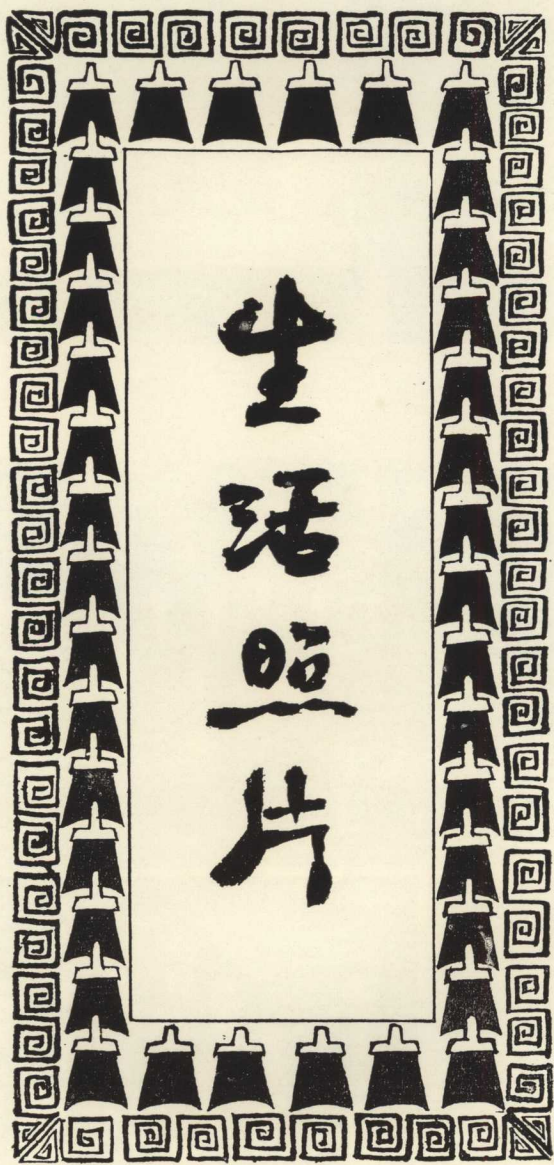 生活照片